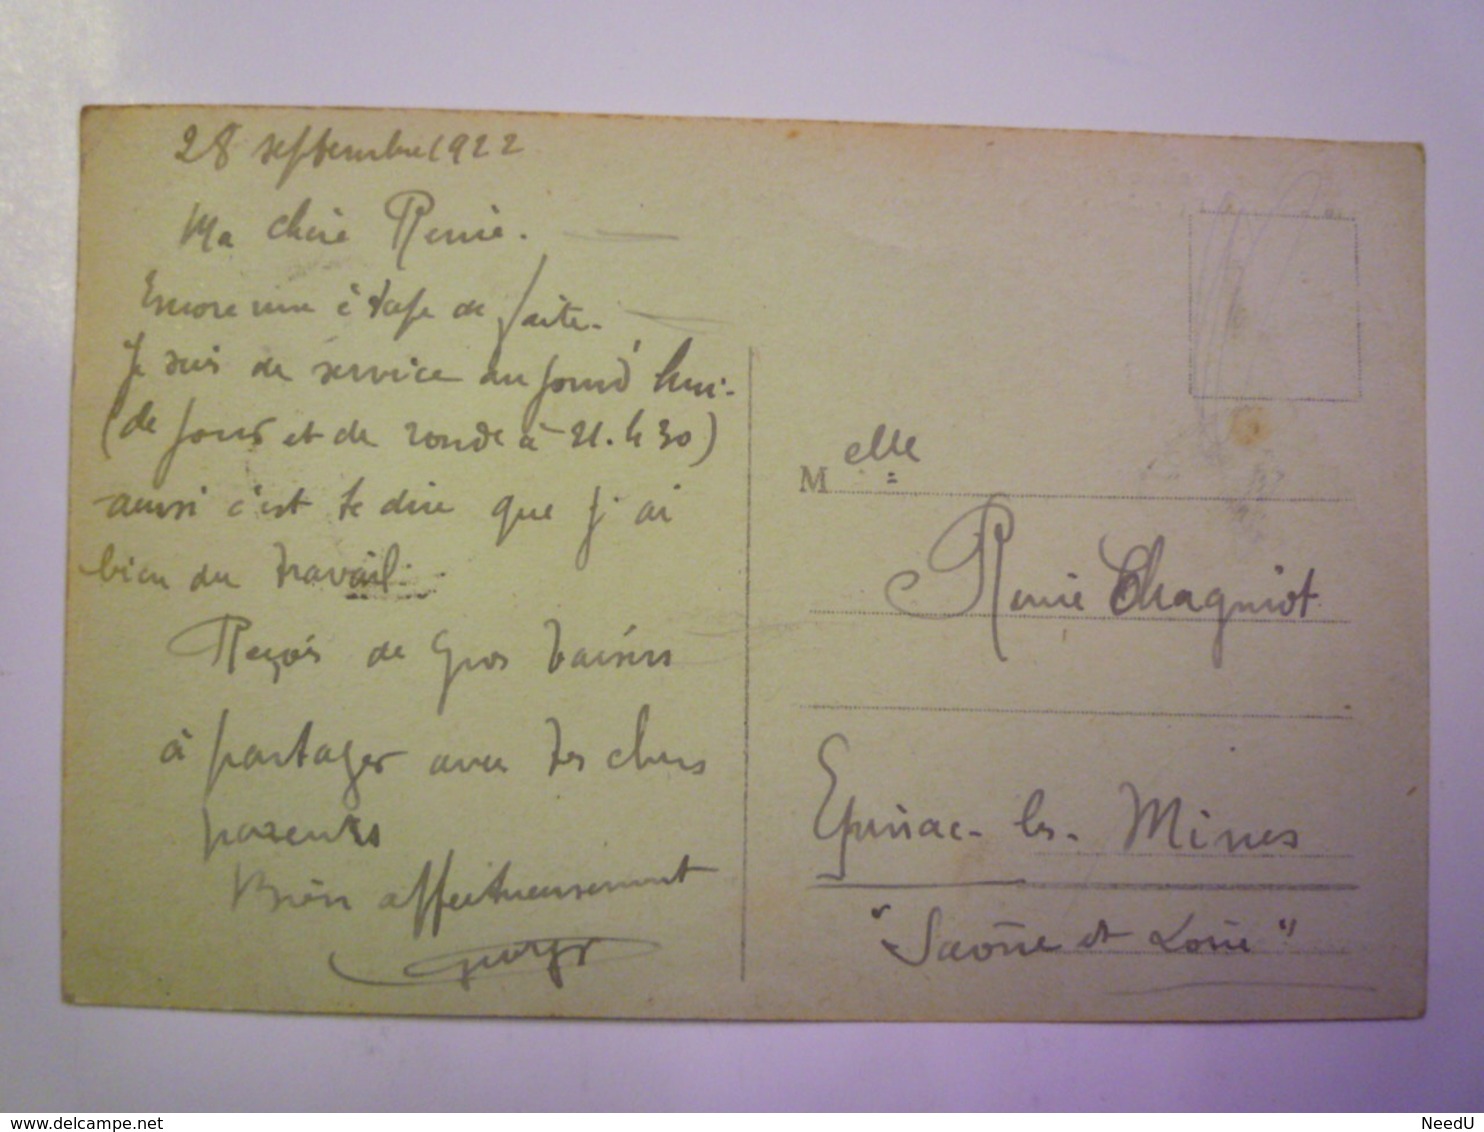 28 septembre 1922
Ma chère Renée.
Encore une étape de faite.
Je suis de service aujourd'hui.
(de jour et de ronde à 21.h30)
aussi c'est te dire que j'ai
bien du travail.
Reçois de gros baisers
à partager avec tes chers
parents
Bien affectueusement
Georges
Melle
Renée Chagniot
Epinac-les-Mines
"Saône et Loire"
NeedU